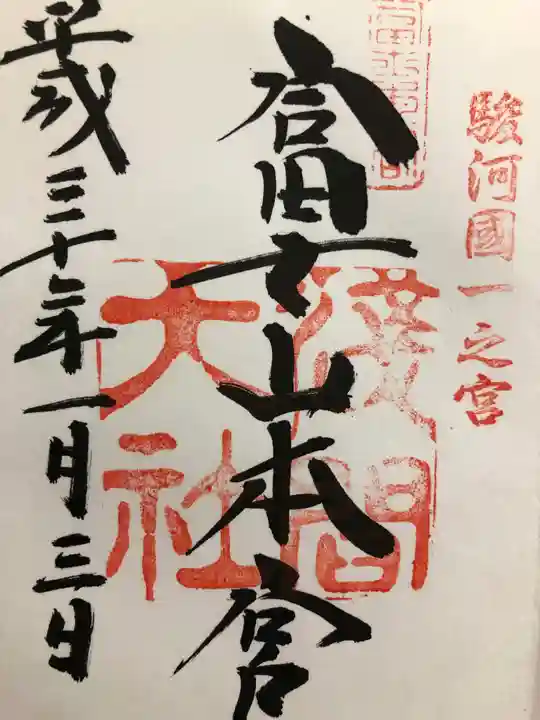 駿河國一之宮
富士山本宮
淺間大社
平成三十年一月三日